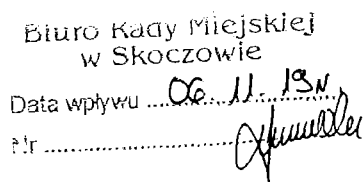 Biuro Rady Miejskiej
w Skoczowie
Data wpływu ..... 06. 11. 19r.
Nr .....................